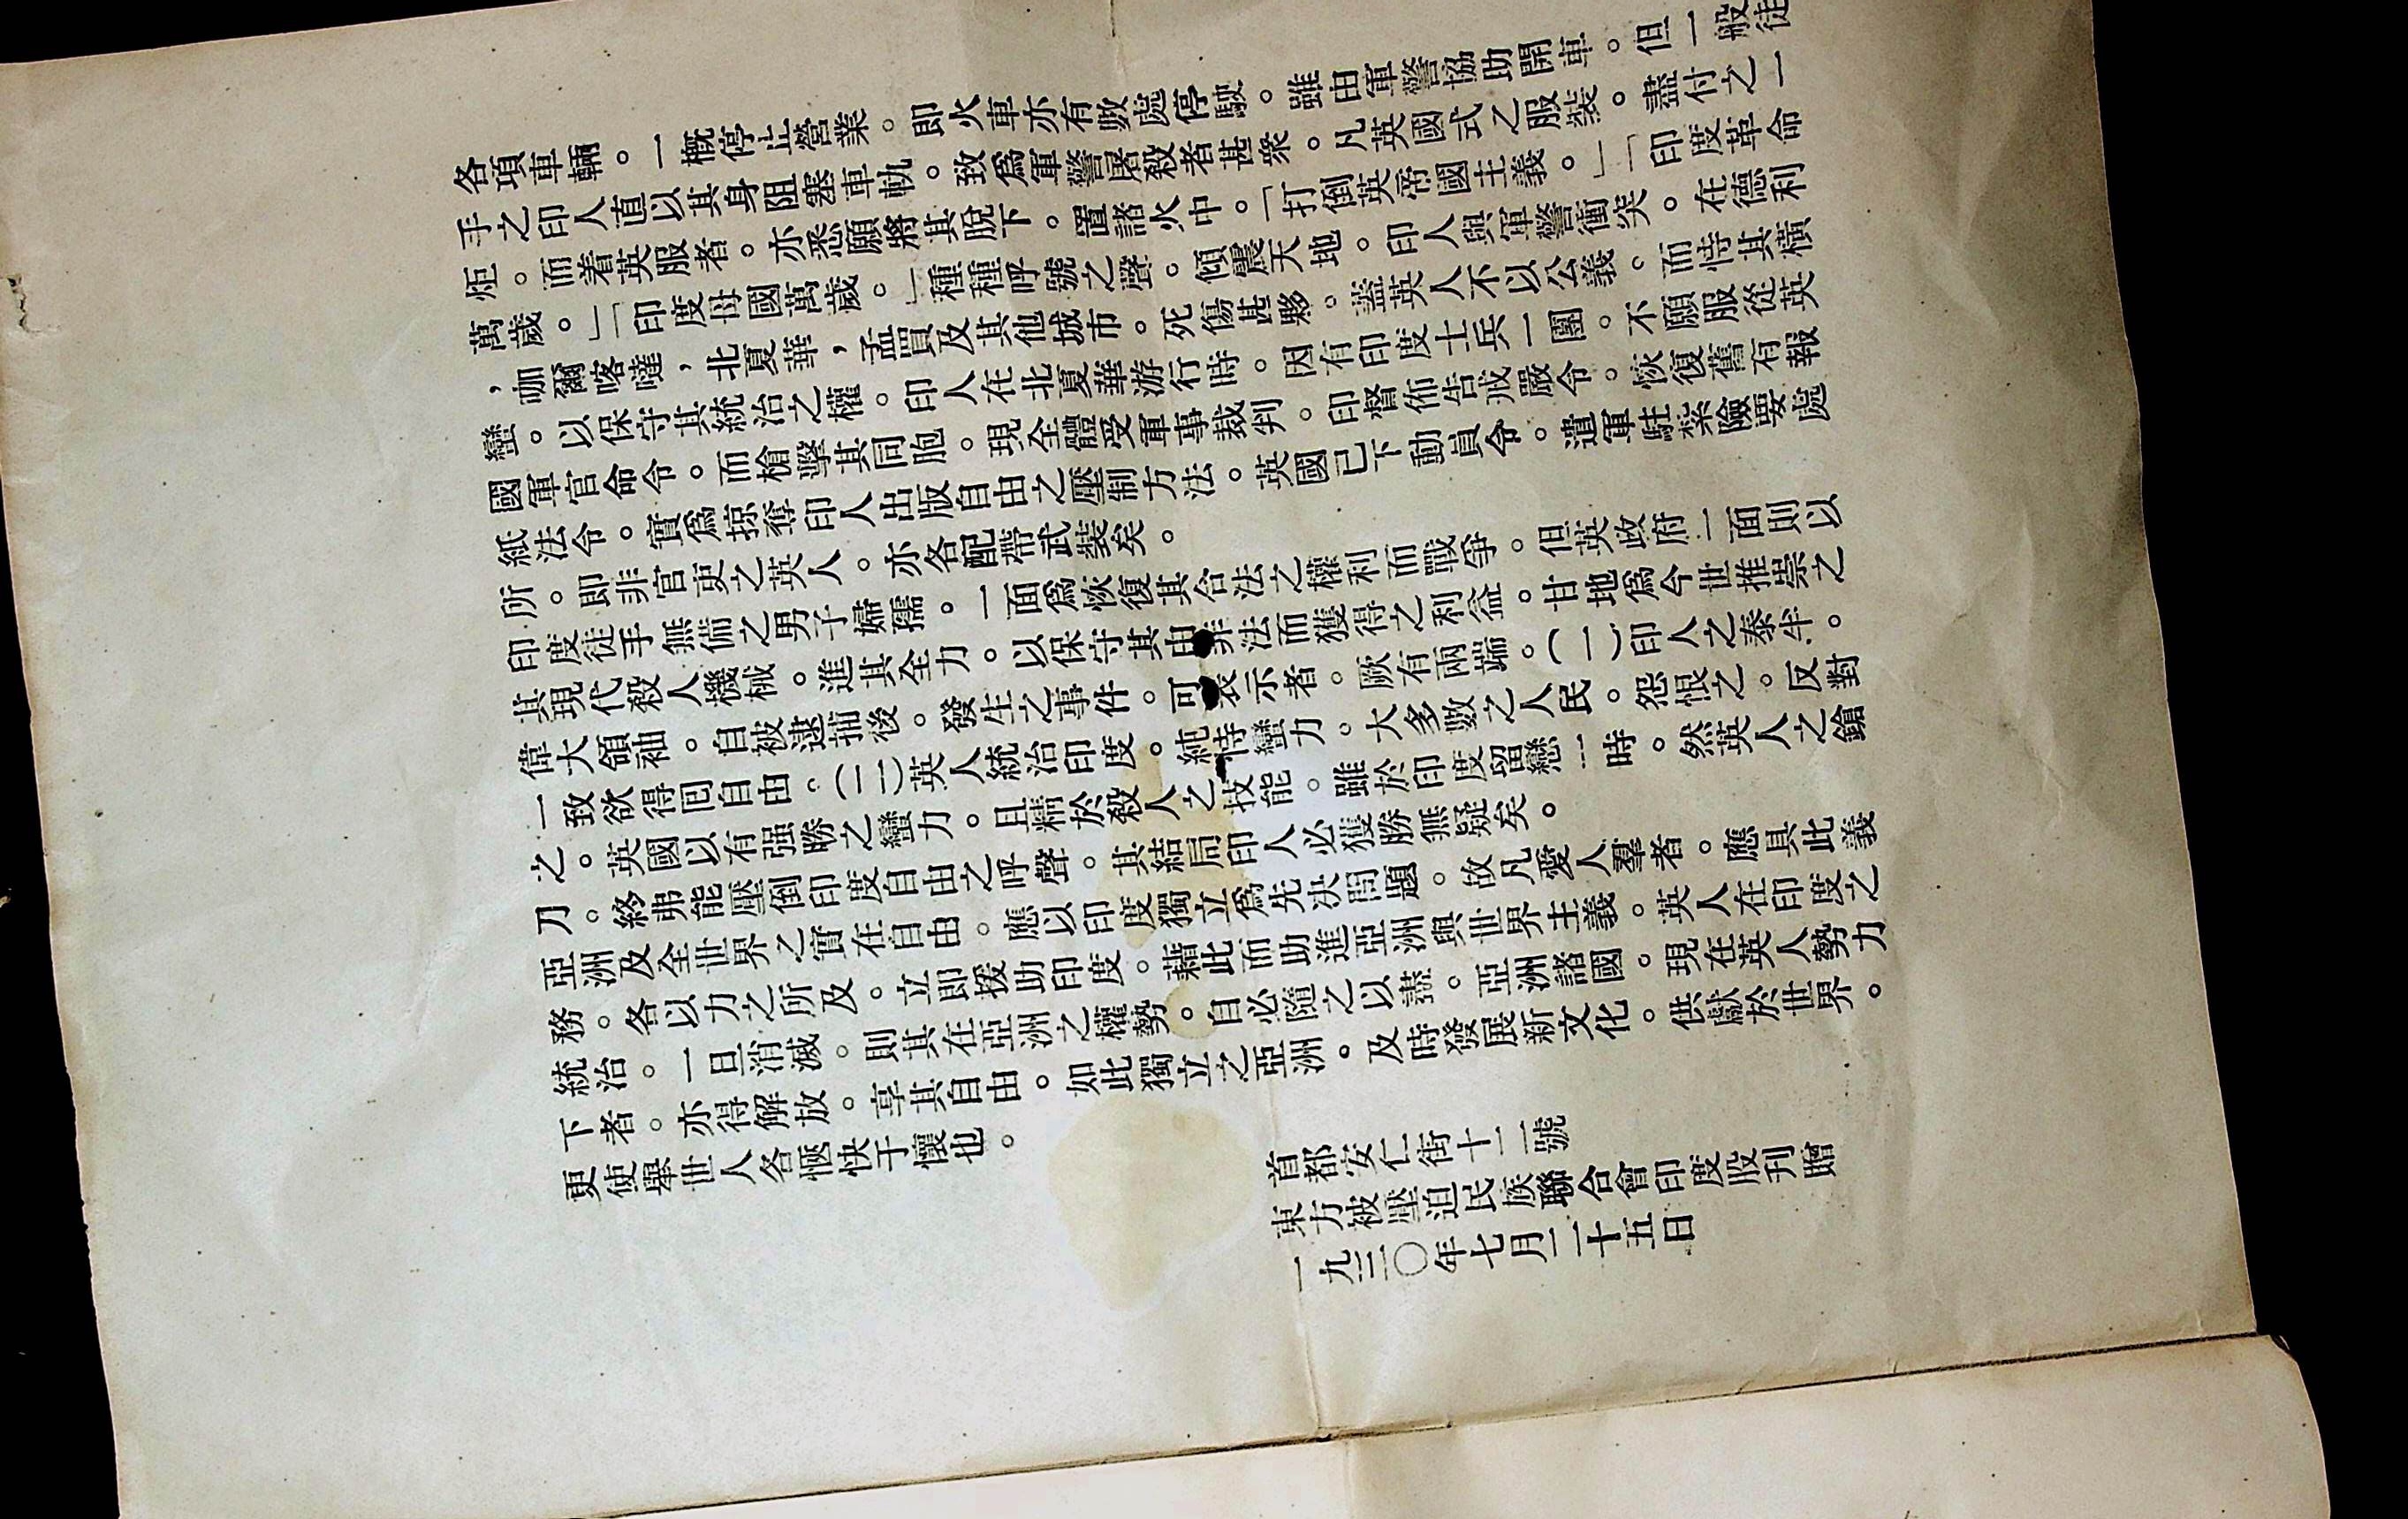 各項車輛。一概停止營業。即火車亦有數處停駛。雖由軍警協助開車。但一般徒
手之印人直以其身阻塞車軌。致爲軍警屠殺者甚衆。凡英國式之服裝。盡付之一
炬。而着英服者。亦悉願將其脫下。置諸火中。「打倒英帝國主義。」「印度革命
萬歲。」「印度母國萬歲。」種種呼號之聲。傾震天地。印人與軍警衝突。在德利
，咖爾喀噠，北夏華，孟買及其他城市。死傷甚夥。蓋英人不以公義。而恃其橫
蠻。以保守其統治之權。印人在北夏華游行時。因有印度士兵一團。不願服從英
國軍官命令。而槍擊其同胞。現全體受軍事裁判。印督佈告戒嚴令。恢復舊有報
紙法令。實爲掠奪印人出版自由之壓制方法。英國已下動員令。遣軍駐紮險要處
所。即非官吏之英人。亦各配帶武裝矣。
印度徒手無備之男子婦孺。一面爲恢復其合法之權利而戰爭。但英政府一面則以
其現代殺人機械。進其全力。以保守其由非法而獲得之利益。甘地爲今世推崇之
偉大領袖。自被逮捕後。發生之事件。可表示者。厥有兩端。(一)印人之泰半。
一致欲得囘自由。(二)英人統治印度。純恃蠻力。大多數之人民。怨恨之。反對
之。英國以有强勝之蠻力。且精於殺人之技能。雖於印度留戀一時。然英人之鎗
刀。終弗能壓倒印度自由之呼聲。其結局印人必獲勝無疑矣。
亞洲及全世界之實在自由。應以印度獨立爲先决問題。故凡愛人羣者。應具此義
務。各以力之所及。立即援助印度。藉此而助進亞洲與世界主義。英人在印度之
統治。一旦消滅。則其在亞洲之權勢。自必隨之以盡。亞洲諸國。現在英人勢力
下者。亦得解放。享其自由。如此獨立之亞洲。及時發展新文化。供獻於世界。
更使舉世人各愜快于懷也。
首都安仁街十二號
東方被壓迫民族聯合會印度股刊贈
一九三〇年七月二十五日